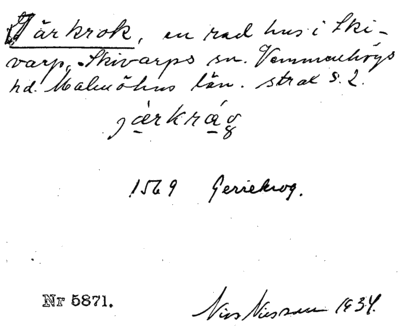 Järkrok, en rad hus i Ski-
varp, Skivarps sn. Vemmenhögs
hd. Malmöhus län. strax S. 2.
jarkråg
1569 Geriekrog.
Nr 5871.
Nils Nilsson 1934.